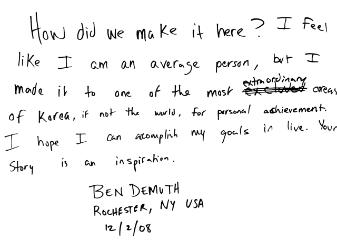 How did we make it here? I feel
like I am an average person, but I
made it to one of the most extraordinary areas
of Korea, if not the world, for personal achievement.
I hope I can accomplish my goals in live. Your
story is an inspiration.
BEN DEMUTH
ROCHESTER, NY USA
12/2/08